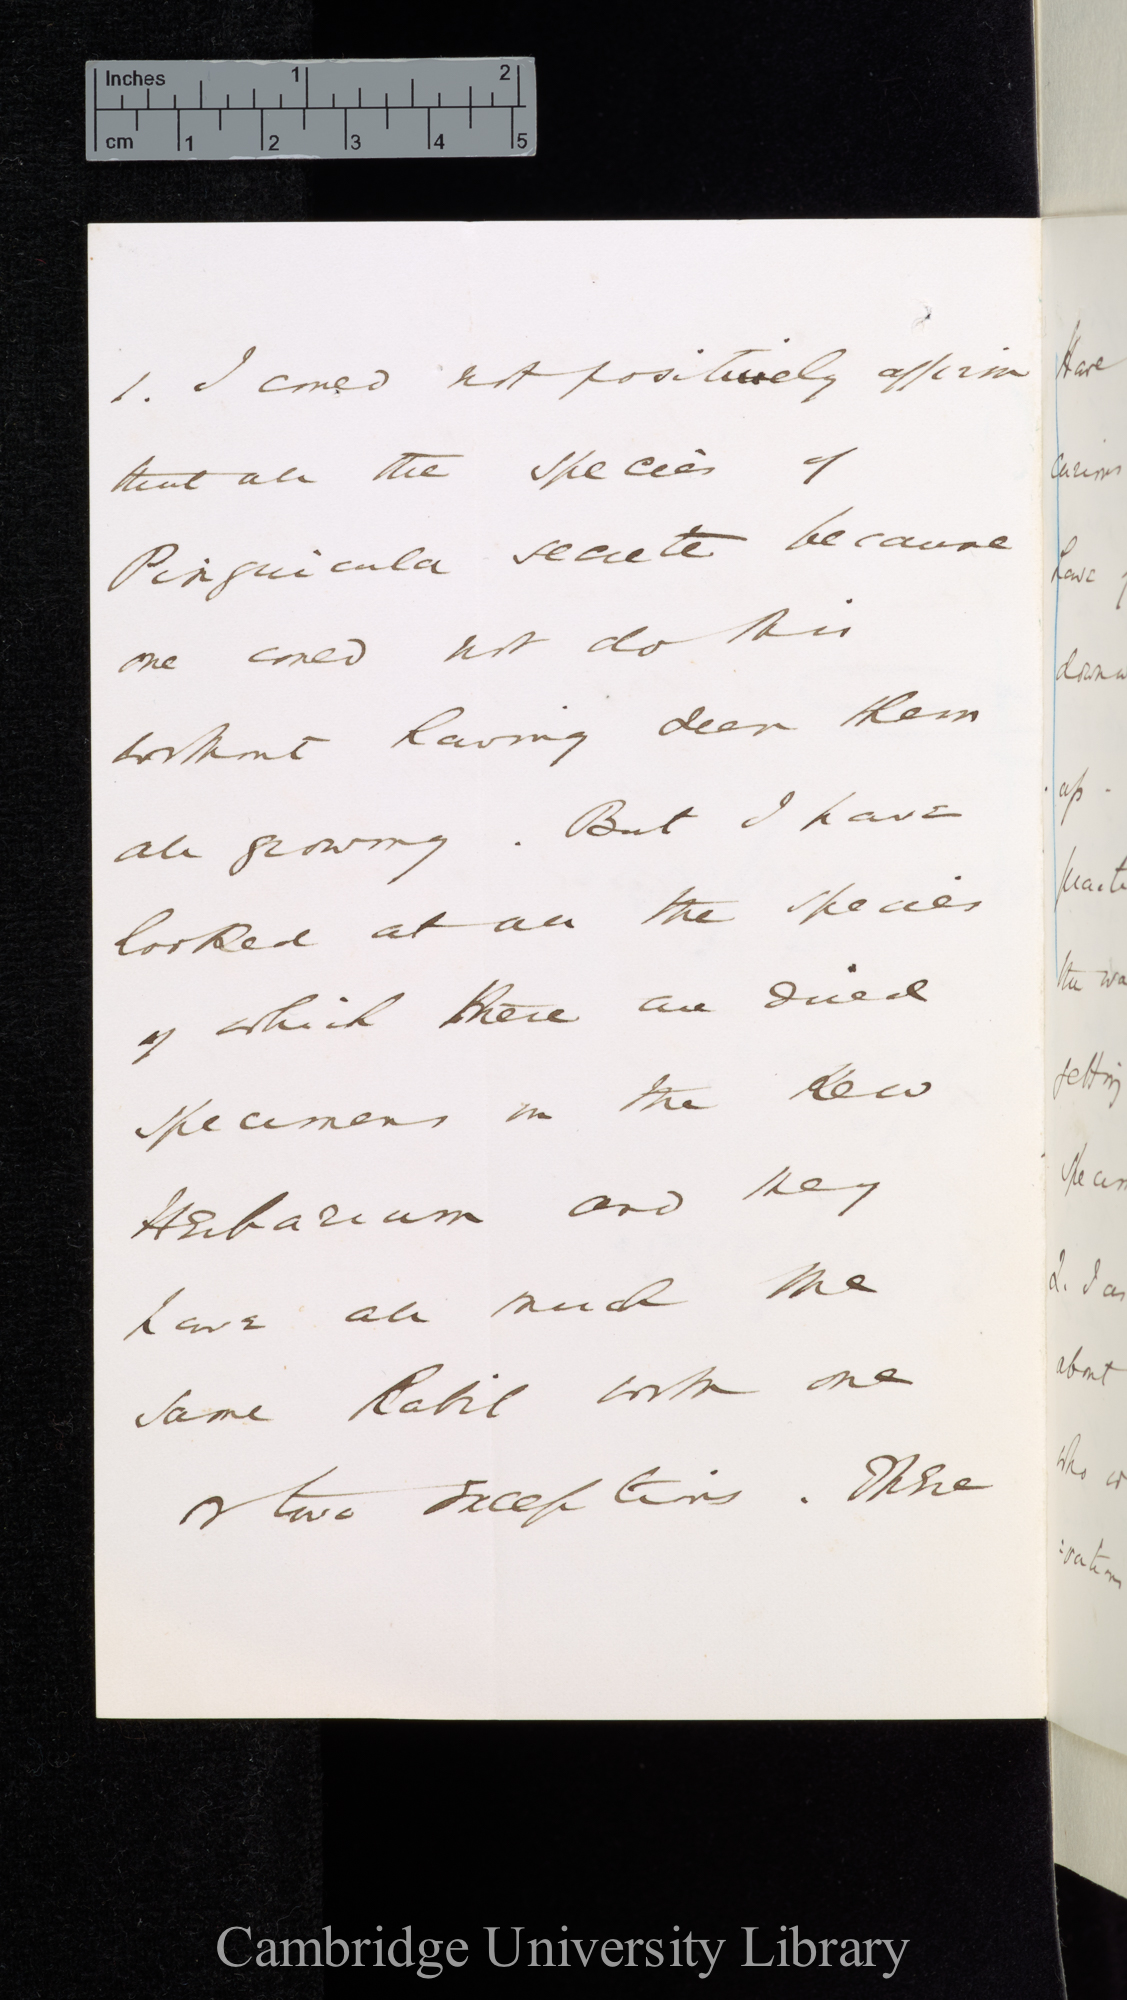 Inches 1 2
cm 1 2 3 4 5
1. I could not positively affirm
that all the species of
Pinguicula secrete because
one could not do this
without having seen them
all growing. But I have
looked at all the species
of which there are dried
specimens in the Kew
Herbarium and they
have all much the
same habit with one
or two exceptions. These
Have
curious
have
down
up -
the
getting
specim
2. I am
about
who
=vations
Cambridge University Library